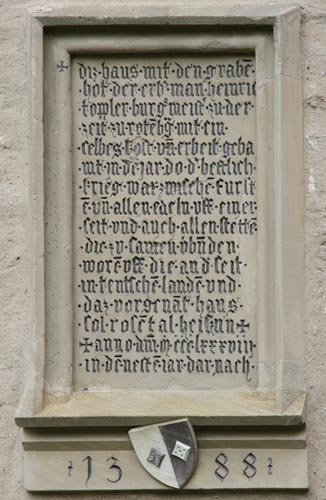 diz · haus · mit · den · grabē ·
hat · der · erb · man · heinric
toppler · burg meist · zu · der ·
zeit · zu · rotēbg · mit · ein
selbes · kost · vn̄ · erbeit · geba
wt · in · de · jar · do · d · hertlich
krieg · waz · zwische · furst
ē · vn̄ · allen · edeln · vff · einer ·
seit · vnd · auch · allen · stetten
die · zv · samen · vbnden
woren · vff · die · and · seit ·
in · teutschen · landen · vnd
daz · vorgenāt · haus ·
sol · rosental · heisnn +
+ anno · dm̄ · m · ccc · lxxxviii
in · de · nestē · iar · dar · nach ·
1388